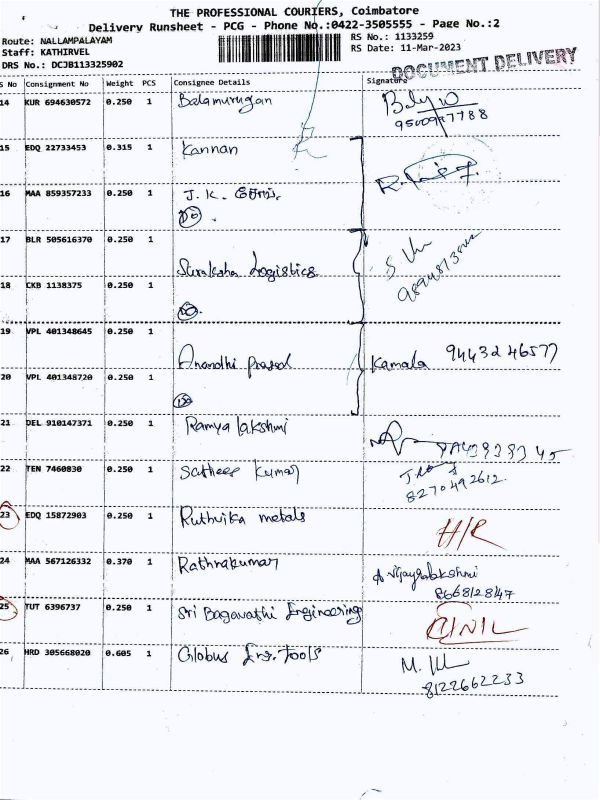 THE PROFESSIONAL COURIERS, Coimbatore
Delivery Runsheet - PCG - Phone No.:0422-3505555 - Page No.:2
Route: NALLAMPALAYAM
Staff: KATHIRVEL
DRS No.: DCJB113325902
RS No.: 1133259
RS Date: 11-Mar-2023
DOCUMENT DELIVERY
S No Consignment No Weight PCS Consignee Details Signature
14 KUR 694630572 0.250 1 Balamurugan
15 EDQ 22733453 0.315 1 Kannan
16 MAA 859357233 0.250 1 J. K.
DO
17 BLR 505616370 0.250 1
Suraksha Logistics
18 CKB 1138375 0.250 1
DO
19 VPL 401348645 0.250 1
Anandhi Prasad Kamala 9443246577
20 VPL 401348720 0.250 1
DO
21 DEL 910147371 0.250 1 Ramya lakshmi
22 TEN 7460830 0.250 1 Sathees kumar
8270492612
23 EDQ 15872903 0.250 1 Ruthvika metals H/R
24 MAA 567126332 0.370 1 Rathnakumar
25 TUT 6396737 0.250 1 Sri Bagavathi Engineering
26 HRD 305668020 0.605 1 Globus Eng. Tools
8122662233